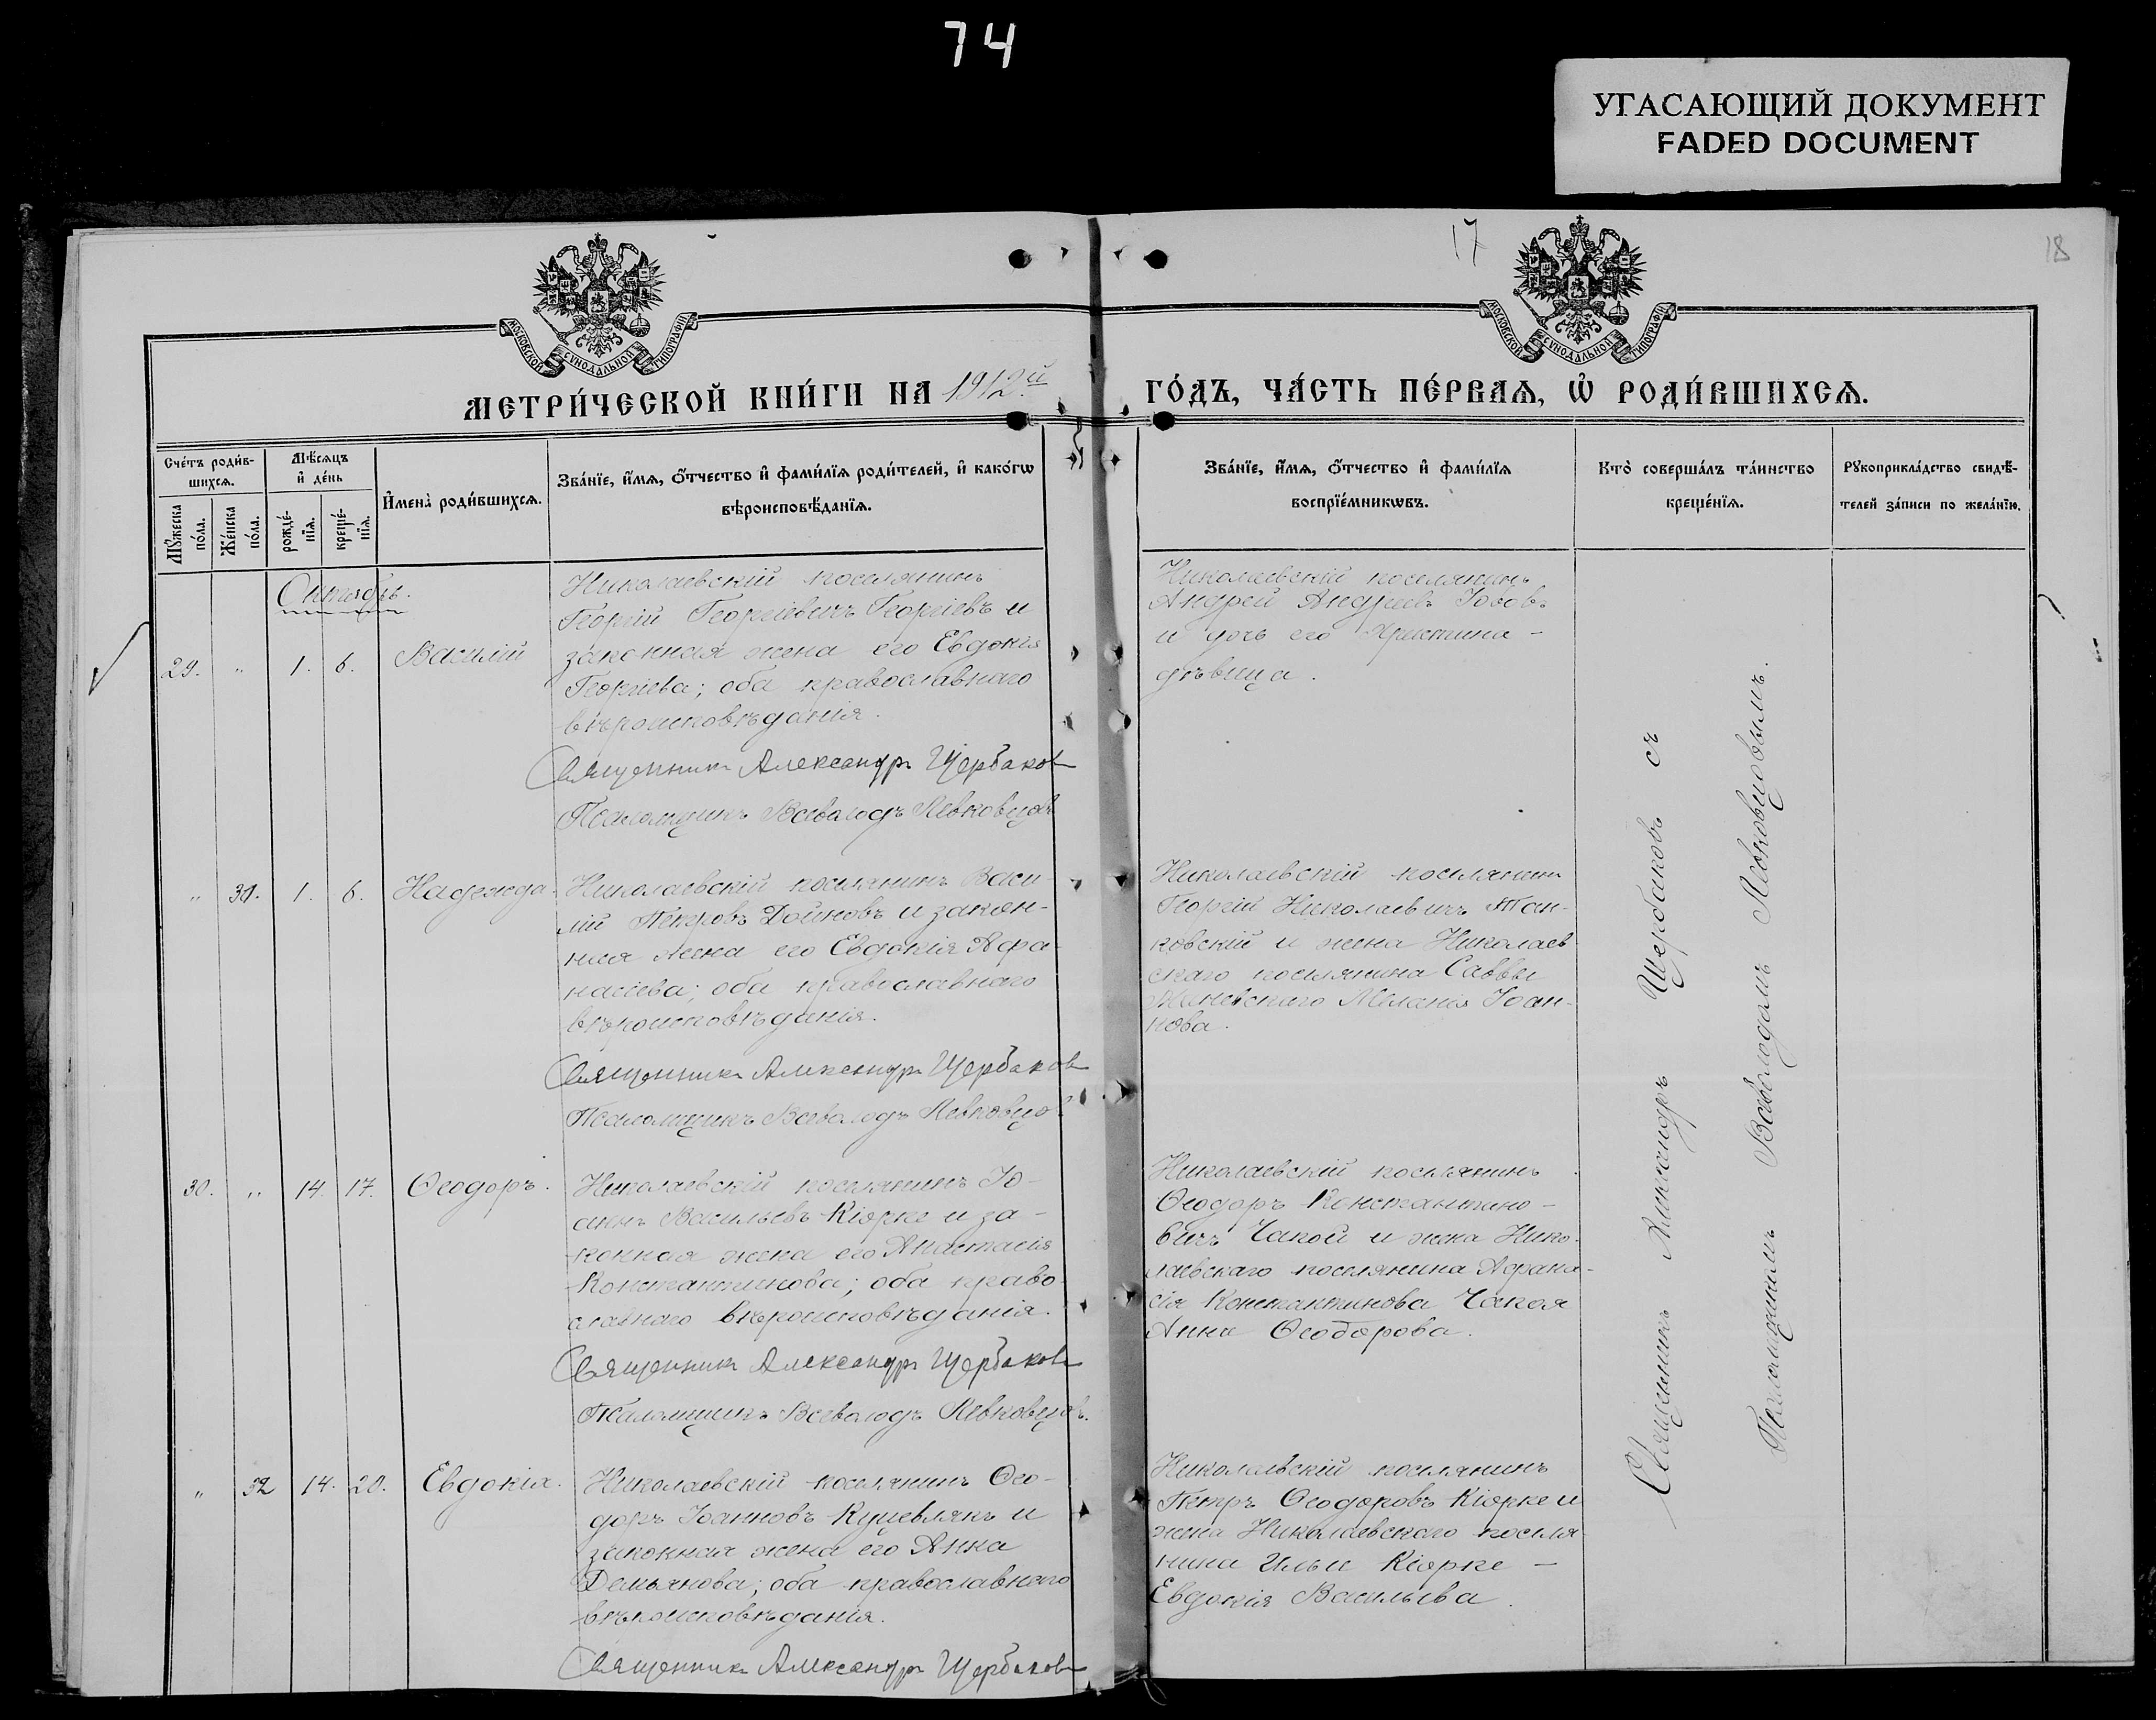 74
УГАСАЮЩИЙ ДОКУМЕНТ
FADED DOCUMENT
17
18
МОСКОВСКОЙ СѴНОДАЛЬНОЙ ТИПОГРАФІИ
МОСКОВСКОЙ СѴНОДАЛЬНОЙ ТИПОГРАФІИ
МЕТРИ́ЧЕСКОЙ КНИ́ГИ НА 1912й ГО́ДЪ, ЧА́СТЬ ПЕ́РВАѦ, Ѡ҆ РОДИ́ВШИХСѦ.
Сче́тъ роди́в-
шихсѧ.
Мѣ́сѧцъ
и҆ де́нь
Мꙋ́жеска по́ла.
Же́нска по́ла.
рожде́-
нїѧ.
креще́-
нїѧ.
И҆мена̀ роди́вшихсѧ.
Зва́нїе, и҆́мѧ, ѻ҆́тчество и҆ фами́лїѧ роди́телей, и҆ како́гѡ
вѣроисповѣ́данїѧ.
Зва́нїе, и҆́мѧ, ѻ҆́тчество и҆ фами́лїѧ
воспрїе́мникѡвъ.
Кто̀ соверша́лъ та́инство
креще́нїѧ.
Рꙋкоприкла́дство свидѣ́-
телей за́писи по жела́нїю.
Октябрь.
29. " 1. 6. Василій
Николаевскій поселянинъ
Георгій Георгіевичъ Георгіевъ и
законная жена его Евдокія
Георгіева; оба православнаго
вѣроисповѣданія.
Священникъ Александръ Щербаковъ
Псаломщикъ Всеволодъ Левковцовъ
Николаевскій поселянинъ
Андрей Андреевъ
и дочь его Христина –
дѣвица.
" 31. 1. 6. Надежда
Николаевскій поселянинъ Васи-
лій Петровъ Дойновъ и закон-
ная жена его Евдокія Афа-
насіева; оба православнаго
вѣроисповѣданія.
Священникъ Александръ Щербаковъ
Псаломщикъ Всеволодъ Левковцовъ
Николаевскій поселянинъ
Георгій Николаевичъ Тан-
ковскій и жена Николаев
скаго поселянина Саввы
Меланія Іоан-
нова.
30. " 14. 17. Ѳеодоръ.
Николаевскій поселянинъ Іо-
аннъ Васильевъ Кіорке и за-
конная жена его Анастасія
Константинова; оба право-
славнаго вѣроисповѣданія.
Священникъ Александръ Щербаковъ
Псаломщикъ Всеволодъ Левковцовъ.
Николаевскій поселянинъ
Ѳеодоръ Константино-
вичъ Чакой и жена Нико-
лаевскаго поселянина Афана-
сія Константинова Чакоя
Анна Ѳеодорова.
" 32 14. 20. Евдокія.
Николаевскій поселянинъ Ѳео-
доръ Іоанновъ и
законная жена его Анна
Демьянова; оба православнаго
вѣроисповѣданія.
Священникъ Александръ Щербаковъ
Николаевскій поселянинъ
Петръ Ѳеодоровъ Кіорке и
жена Николаевскаго поселя-
нина Ильи Кіорке –
Евдокія Васильева.
Священникъ Александръ Щербаковъ съ
Псаломщикомъ Всеволодомъ Левковцовымъ.